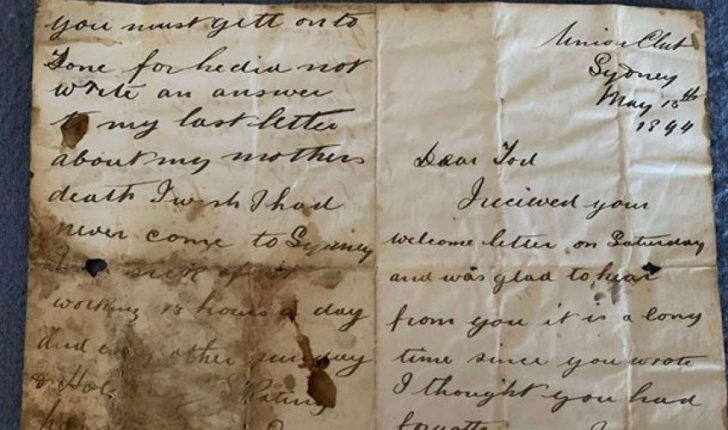 you must gett on to
for he did not
write an answer
to my last letter
about my mothers
death I wish I had
never come to Sydney
sick of it
working 13 hours a day
and other sunday
&
Union Club
Sydney
May 15th
1894
Dear Tod
I recieved your
welcome letter on Saturday
and was glad to hear
from you it is a long
time since you wrote
I thought you had